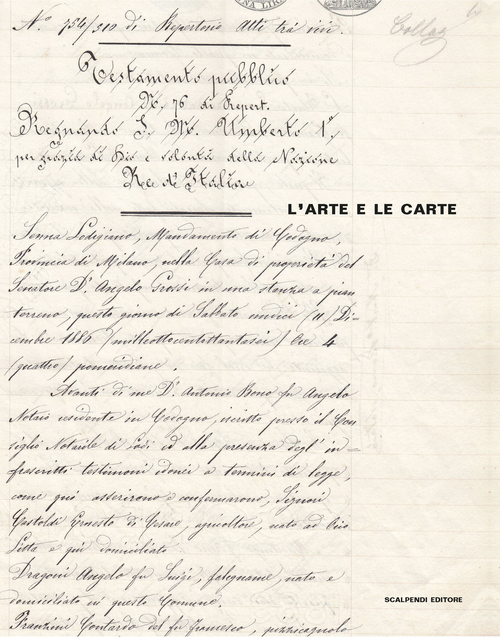 NA LIRE
N.° 754/310 di Repertorio Atti tra vivi.
Testamento pubblico
N. 76 di Repert.
Regnando S. M. Umberto 1°,
per grazia di Dio e volontà della Nazione
Re d'Italia
L'ARTE E LE CARTE
Senna Lodigiano, Mandamento di Codogno,
Provincia di Milano, nella Casa di proprietà del
Senatore D.r Angelo Grossi in una stanza a pian
terreno, questo giorno di Sabbato undici (11) Di-
cembre 1886 (milleottocentottantasei) Ore 4
(quattro) pomeridiane.
Avanti di me D.r Antonio Bono fu Angelo
Notaio residente in Codogno, iscritto presso il Con
siglio Notarile di Lodi ed alla presenza degl' in=
frascritti testimoni idonei a termini di legge,
come qui asserirono e confermarono, Signori
Castoldi Ernesto di Cesare, agricoltore, nato ad Orio
Litta e qui domiciliato
Dragoni Angelo fu Luigi, falegname, nato e
domiciliato in questo Comune.
SCALPENDI EDITORE
Franzini Contardo del fu Francesco, pizzicagnolo